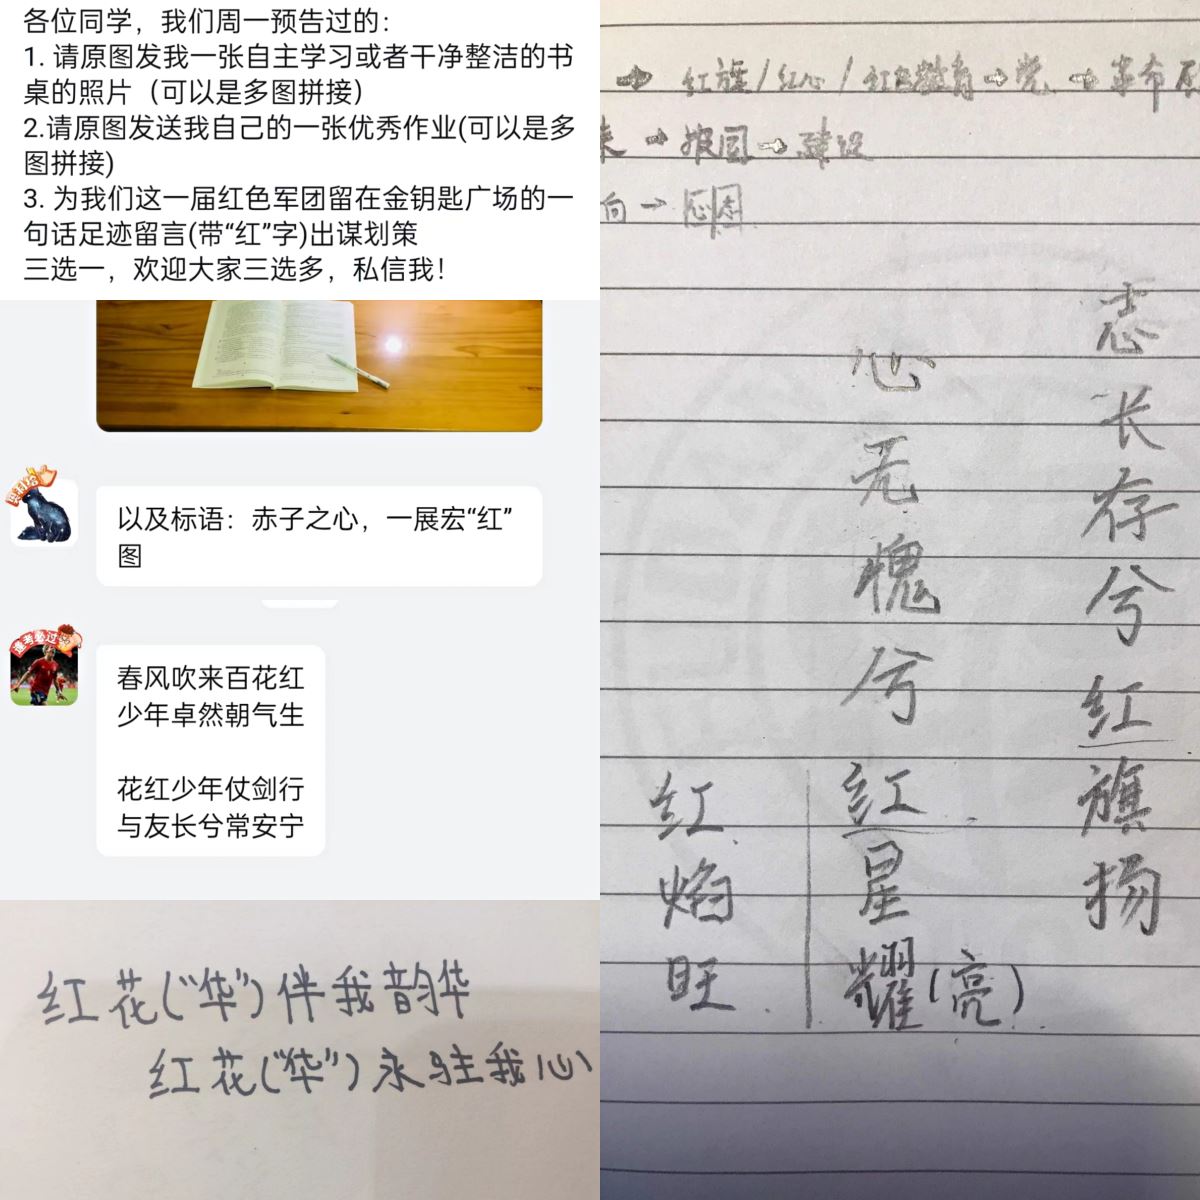 各位同学，我们周一预告过的：
1. 请原图发我一张自主学习或者干净整洁的书
桌的照片（可以是多图拼接）
2.请原图发送我自己的一张优秀作业(可以是多
图拼接)
3. 为我们这一届红色军团留在金钥匙广场的一
句话足迹留言(带“红”字)出谋划策
三选一，欢迎大家三选多，私信我！
以及标语：赤子之心，一展宏“红”
图
逢考必过
春风吹来百花红
少年卓然朝气生
花红少年仗剑行
与友长兮常安宁
红花(“华”)伴我韵华
红花(“华”)永驻我心
→ 红旗/红心/红色教育→党→革命
→报国→建设
向→
志长存兮红旗扬
心无愧兮红星耀(亮)
红焰旺